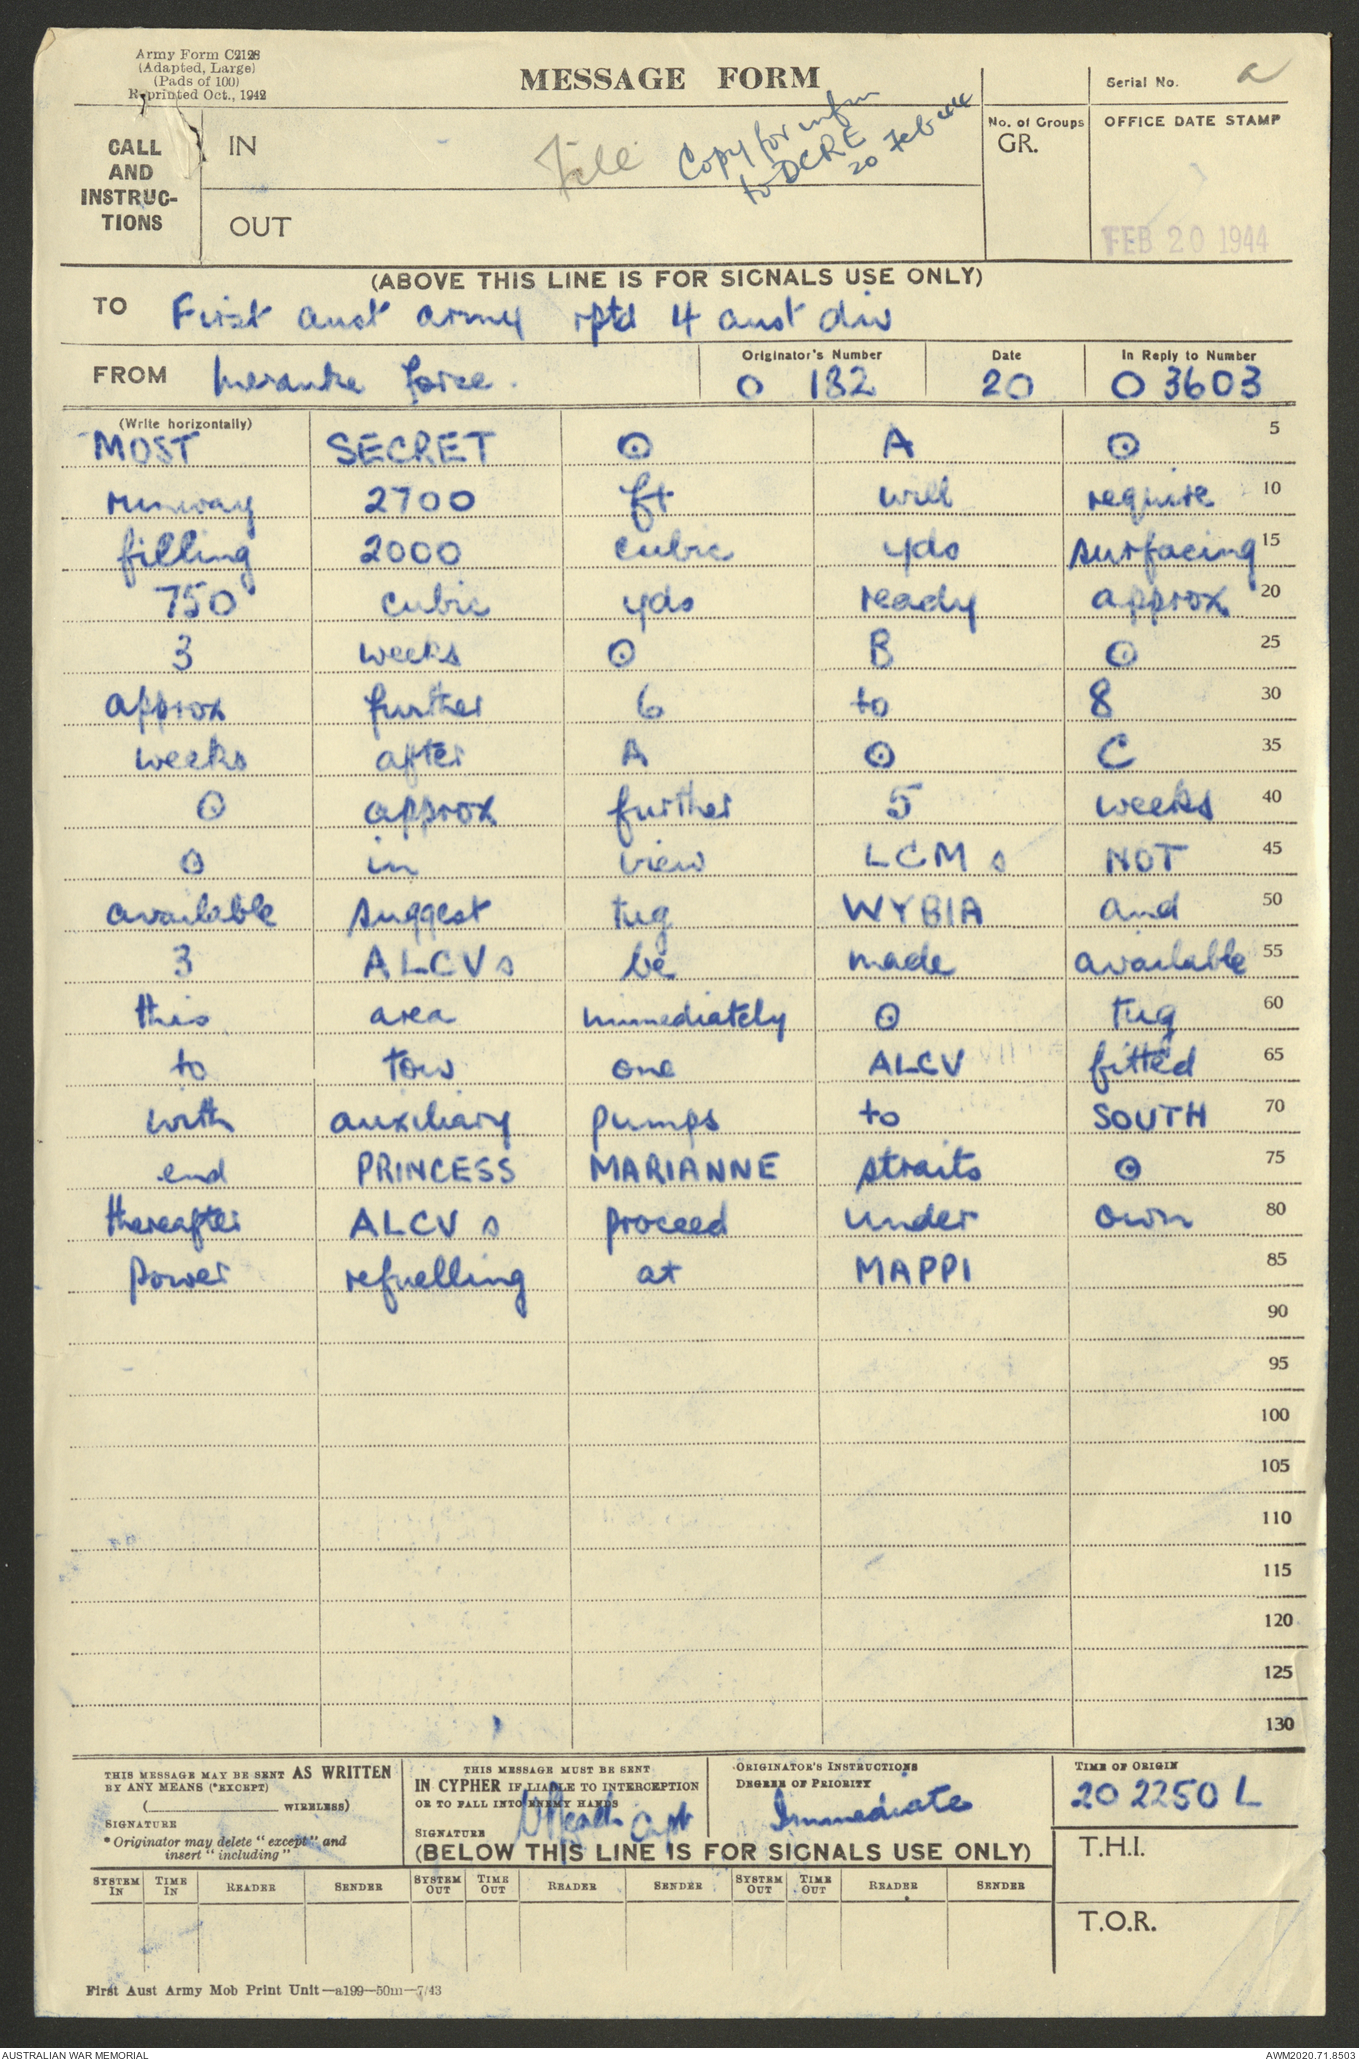 Army Form C2128
(Adapted, Large)
(Pads of 100)
Reprinted Oct., 1942
MESSAGE FORM
Serial No.
CALL
AND
INSTRUC-
TIONS
IN
OUT
File
Copy for infm
to DCRE
20 Feb 44
No. of Groups
GR.
OFFICE DATE STAMP
FEB 20 1944
(ABOVE THIS LINE IS FOR SIGNALS USE ONLY)
TO First aust army rptd 4 aust div
FROM Merauke force. Originator's Number O 182 Date 20 In Reply to Number O 3603
(Write horizontally)
MOST SECRET ⊙ A ⊙ 5
runway 2700 ft will require 10
filling 2000 cubic yds surfacing 15
750 cubic yds ready approx 20
3 weeks ⊙ B ⊙ 25
approx further 6 to 8 30
weeks after A ⊙ C 35
⊙ approx further 5 weeks 40
⊙ in view LCM s NOT 45
available suggest tug WYBIA and 50
3 ALCV s be made available 55
this area immediately ⊙ tug 60
to tow one ALCV fitted 65
with auxiliary pumps to SOUTH 70
end PRINCESS MARIANNE straits ⊙ 75
thereafter ALCV s proceed under own 80
power refuelling at MAPPI 85
90
95
100
105
110
115
120
125
130
THIS MESSAGE MAY BE SENT AS WRITTEN
BY ANY MEANS (*EXCEPT)
( WIRELESS)
SIGNATURE
* Originator may delete "except" and
insert "including"
THIS MESSAGE MUST BE SENT
IN CYPHER IF LIABLE TO INTERCEPTION
OR TO FALL INTO ENEMY HANDS
SIGNATURE Capt
ORIGINATOR'S INSTRUCTIONS
DEGREE OF PRIORITY
Immediate
TIME OF ORIGIN
20 2250 L
(BELOW THIS LINE IS FOR SIGNALS USE ONLY)
T.H.I.
T.O.R.
SYSTEM IN TIME IN READER SENDER SYSTEM OUT TIME OUT READER SENDER SYSTEM OUT TIME OUT READER SENDER
First Aust Army Mob Print Unit—a199—50m—7/43
AUSTRALIAN WAR MEMORIAL
AWM2020.71.8503